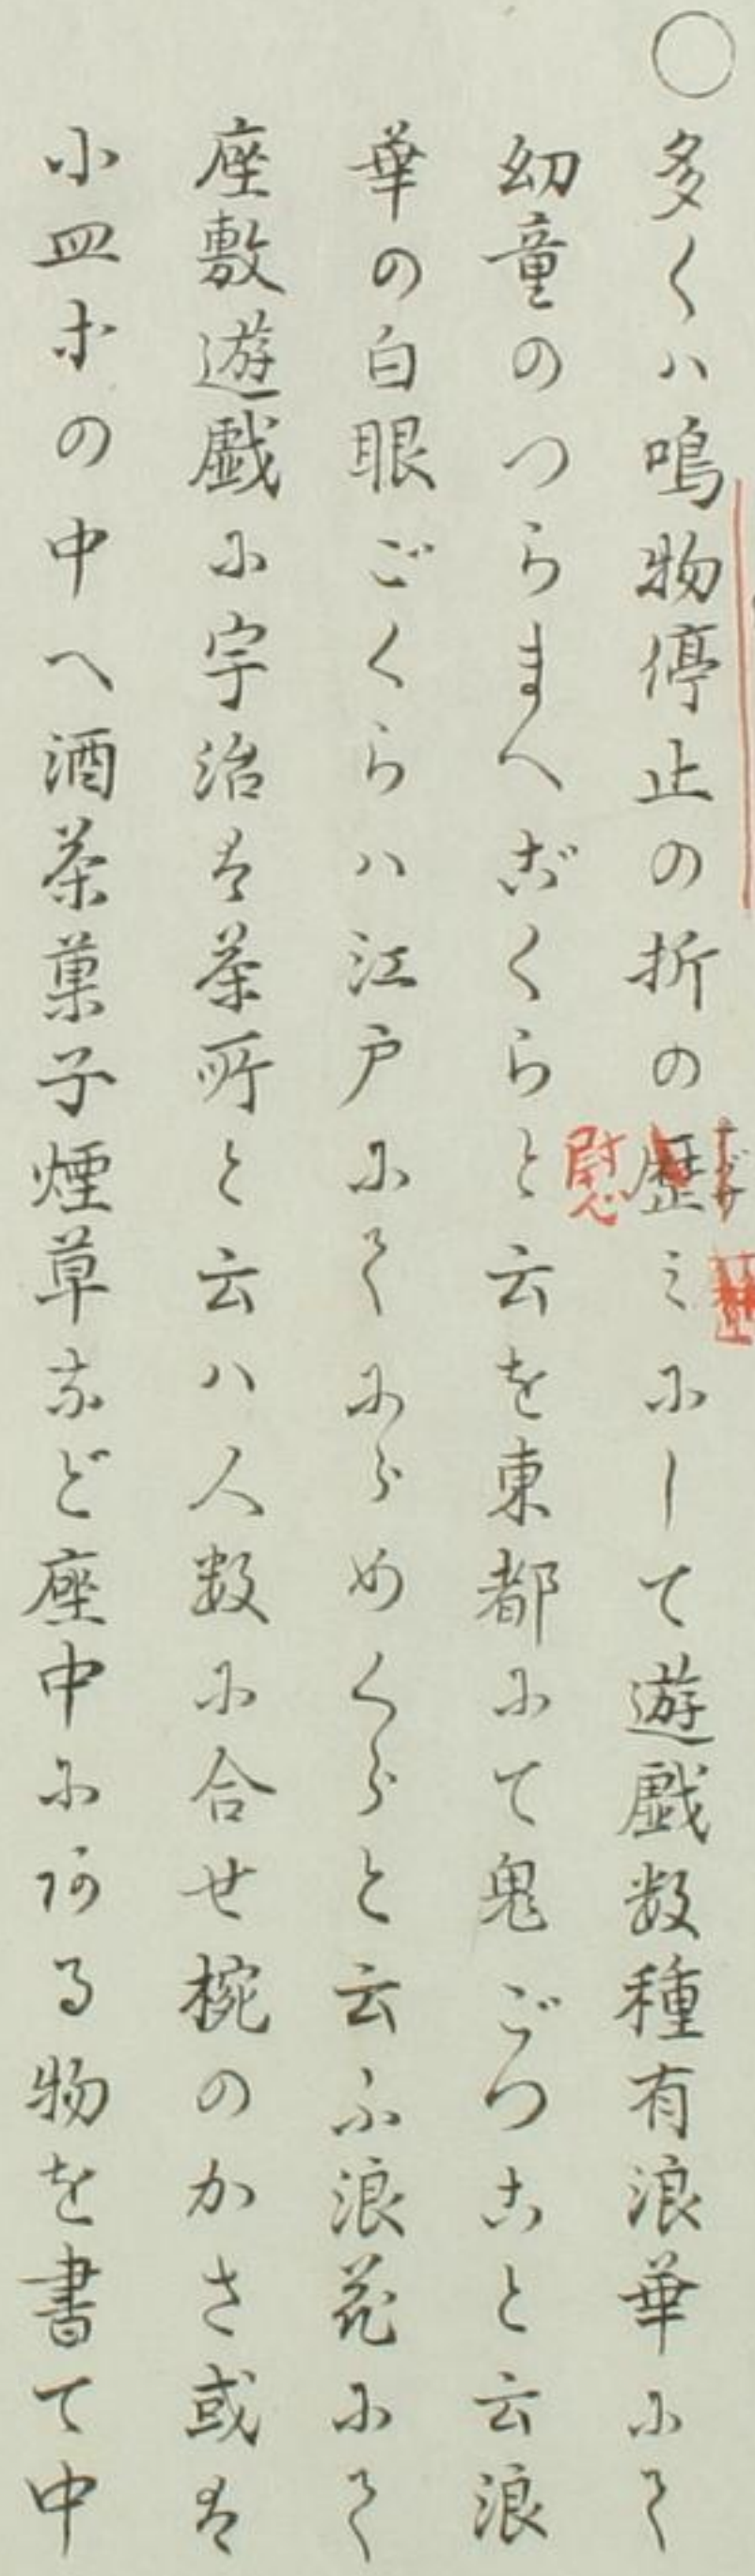 ○多くハ鳴物停止の折の歴ミにして遊戯数種有浪華にて
慰
幼童のつらまへごくらと云を東都にて鬼ごつこと云浪
華の白眼ごくらハ江戸にてにらめくらと云ふ浪花にて
座敷遊戯に宇治は茶所と云ハ人数に合せ椀のかさ或は
小皿ホの中へ酒茶菓子煙草など座中にある物を書て中